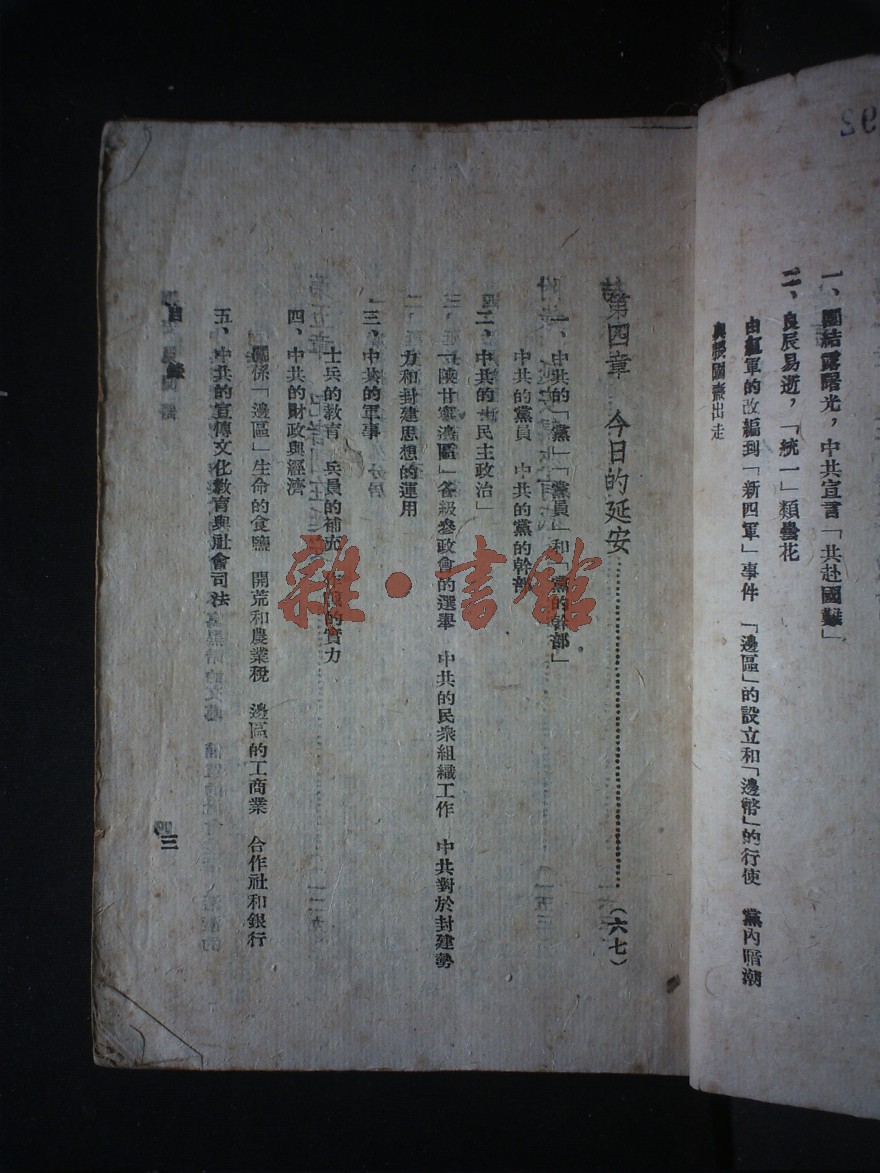 一、團結露曙光，中共宣言「共赴國難」
二、良辰易逝，「統一」類曇花
由紅軍的改編到「新四軍」事件　「邊區」的設立和「邊幣」的行使　黨內暗潮
與張國燾出走
第四章　今日的延安……（六七）
一、中共的「黨」「黨員」和「黨的幹部」
中共的黨員　中共的黨的幹部
二、中共的「新民主政治」
「陝甘寧邊區」各級參政會的選舉　中共的民衆組織工作　中共對於封建勢
力和封建思想的運用
三、中共的軍事
士兵的教育　兵員的補充　的實力
四、中共的財政與經濟
關係「邊區」生命的食鹽　開荒和農業稅　邊區的工商業　合作社和銀行
五、中共的宣傳文化教育與社會司法
目錄
三
雜·書館